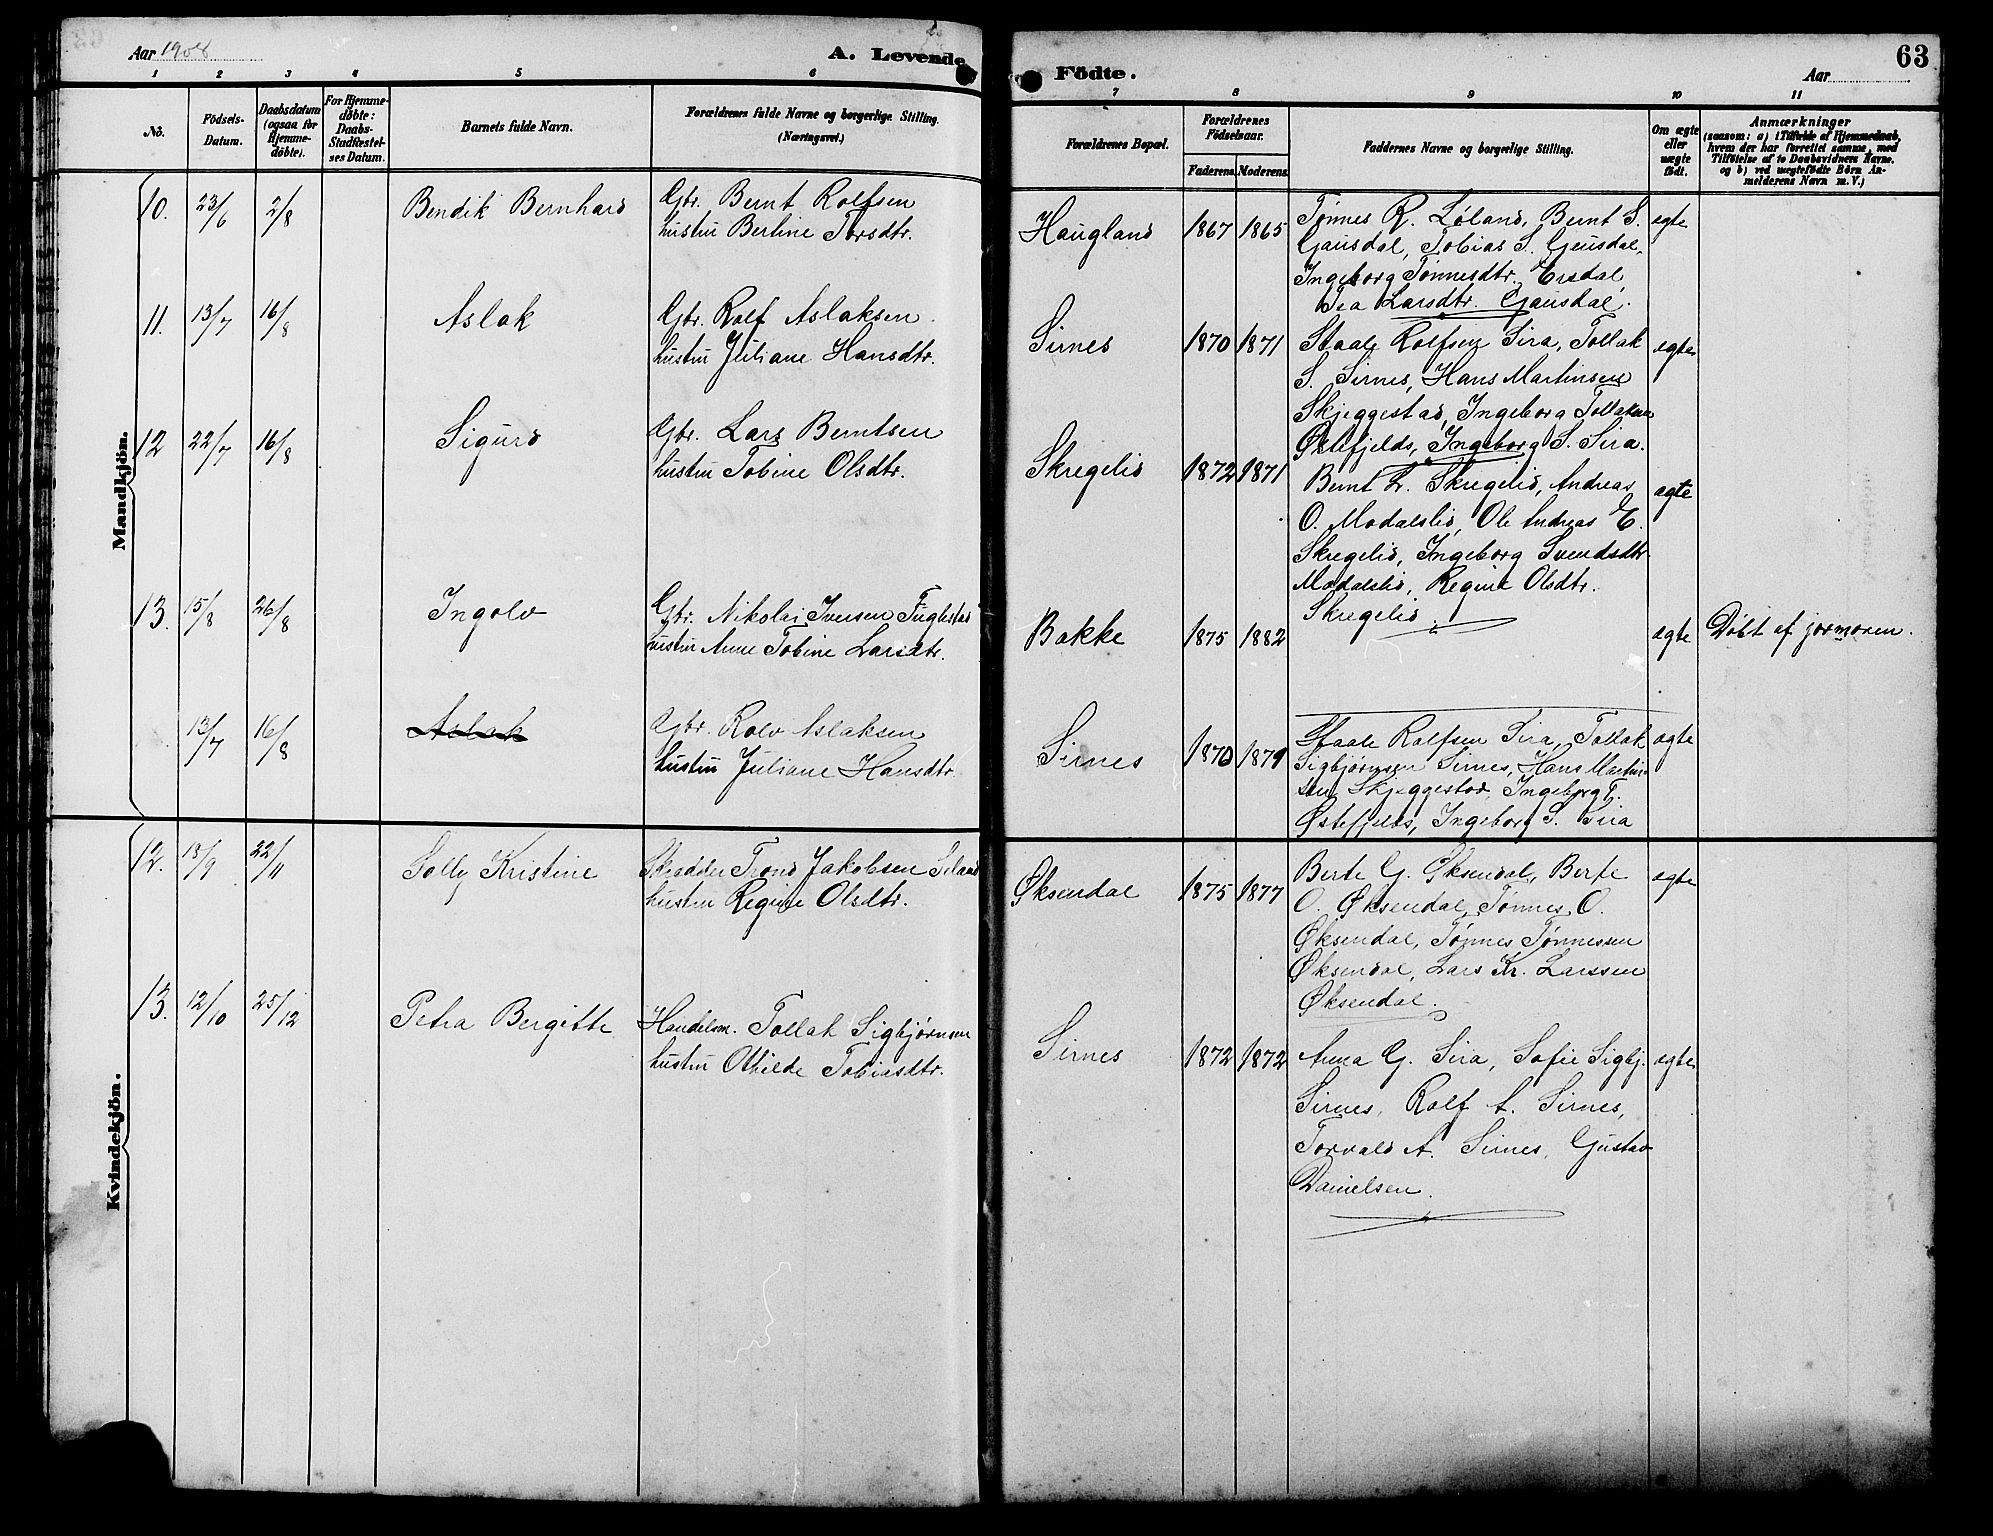 Aar 1908
A. Levende
Födte.
63
Aar
1 2 3 4 5 6 7 8 9 10 11
No.
Födsels-
Datum.
Daabsdatum
(ogsaa for
Hjemme-
döbte).
For Hjemme-
döbte:
Daabs-
Stadfæstel-
ses Datum.
Barnets fulde Navn.
Forældrenes fulde Navne og borgerlige Stilling.
(Næringsvei.)
Forældrenes Bopæl.
Forældrenes
Födselsaar.
Faderens. Moderens.
Faddernes Navne og borgerlige Stilling.
Om ægte
eller
uægte
födt.
Anmærkninger
(saasom: a) i Tilfælde af Hjemmedaab,
hvem der har forrettet samme, med
Tilföielse af to Daabsvidners Navne.
og b) ved uægtefödte Börn An-
melderens Navn m. V.)
Mandkjön.
10. 23/6 2/8 Bendik Bernhard
Gbr. Bernt Rolfsen
hustru Bertine Torsdtr.
Haugland 1867 1865
Tønnes R. Løland, Bernt S.
Gausdal, Tobias S. Gausdal,
Ingeborg Tønnesdtr. Ersdal,
Tea Larsdtr. Gausdal.
egte
11. 13/7 16/8 Aslak
Gbr. Rolf Aslaksen
hustru Juliane Hansdtr.
Sirnes 1870 1871
Staale Rolfsen Sira, Tollak
S. Sirnes, Hans Martinsen
Skjeggestad, Ingeborg Tollaksen
Østefjelds, Ingeborg S. Sira.
egte
12 22/7 16/8 Sigurd
Gbr. Lars Berntsen
hustru Tobine Olsdtr.
Skregelid 1872 1871
Bernt L. Skregelid, Andreas
O. Modalslid, Ole Andreas E.
Skregelid, Ingeborg Svendsdtr.
Modalslid, Regine Olsdtr.
Skregelid
egte
13. 15/8 26/8 Ingolv
Gbr. Nikolai Iversen Fuglestad
hustru Anne Tobine Larsdtr.
Bakke 1875 1882
egte
Døbt af jormoren.
13/7 16/8 Aslak
Gbr. Rolv Aslaksen
hustru Juliane Hansdtr.
Sirnes 1870 1871
Staale Rolfsen Sira, Tollak
Sigbjørnsen Sirnes, Hans Martin-
sen Skjeggestad, Ingeborg T.
Østefjelds, Ingeborg S. Sira
egte
Kvindekjön.
12. 13/9 22/11 Solly Kristine
Skrædder Trond Jakobsen
hustru Regine Olsdtr.
Øksendal 1875 1877
Berte G. Øksendal, Berte
O. Øksendal, Tønnes O.
Øksendal, Tønnes Tønnessen
Øksendal, Lars Kr. Larssen
Øksendal.
egte
13. 12/10 25/12 Petra Bergitte
Handelsm. Tollak Sigbjørnsen
hustru Othilde Tobiasdtr.
Sirnes 1872 1872
Anna G. Sira, Sofie Sigbj.
Sirnes, Rolf A. Sirnes,
Torvald A. Sirnes, Gustav
Danielsen.
egte